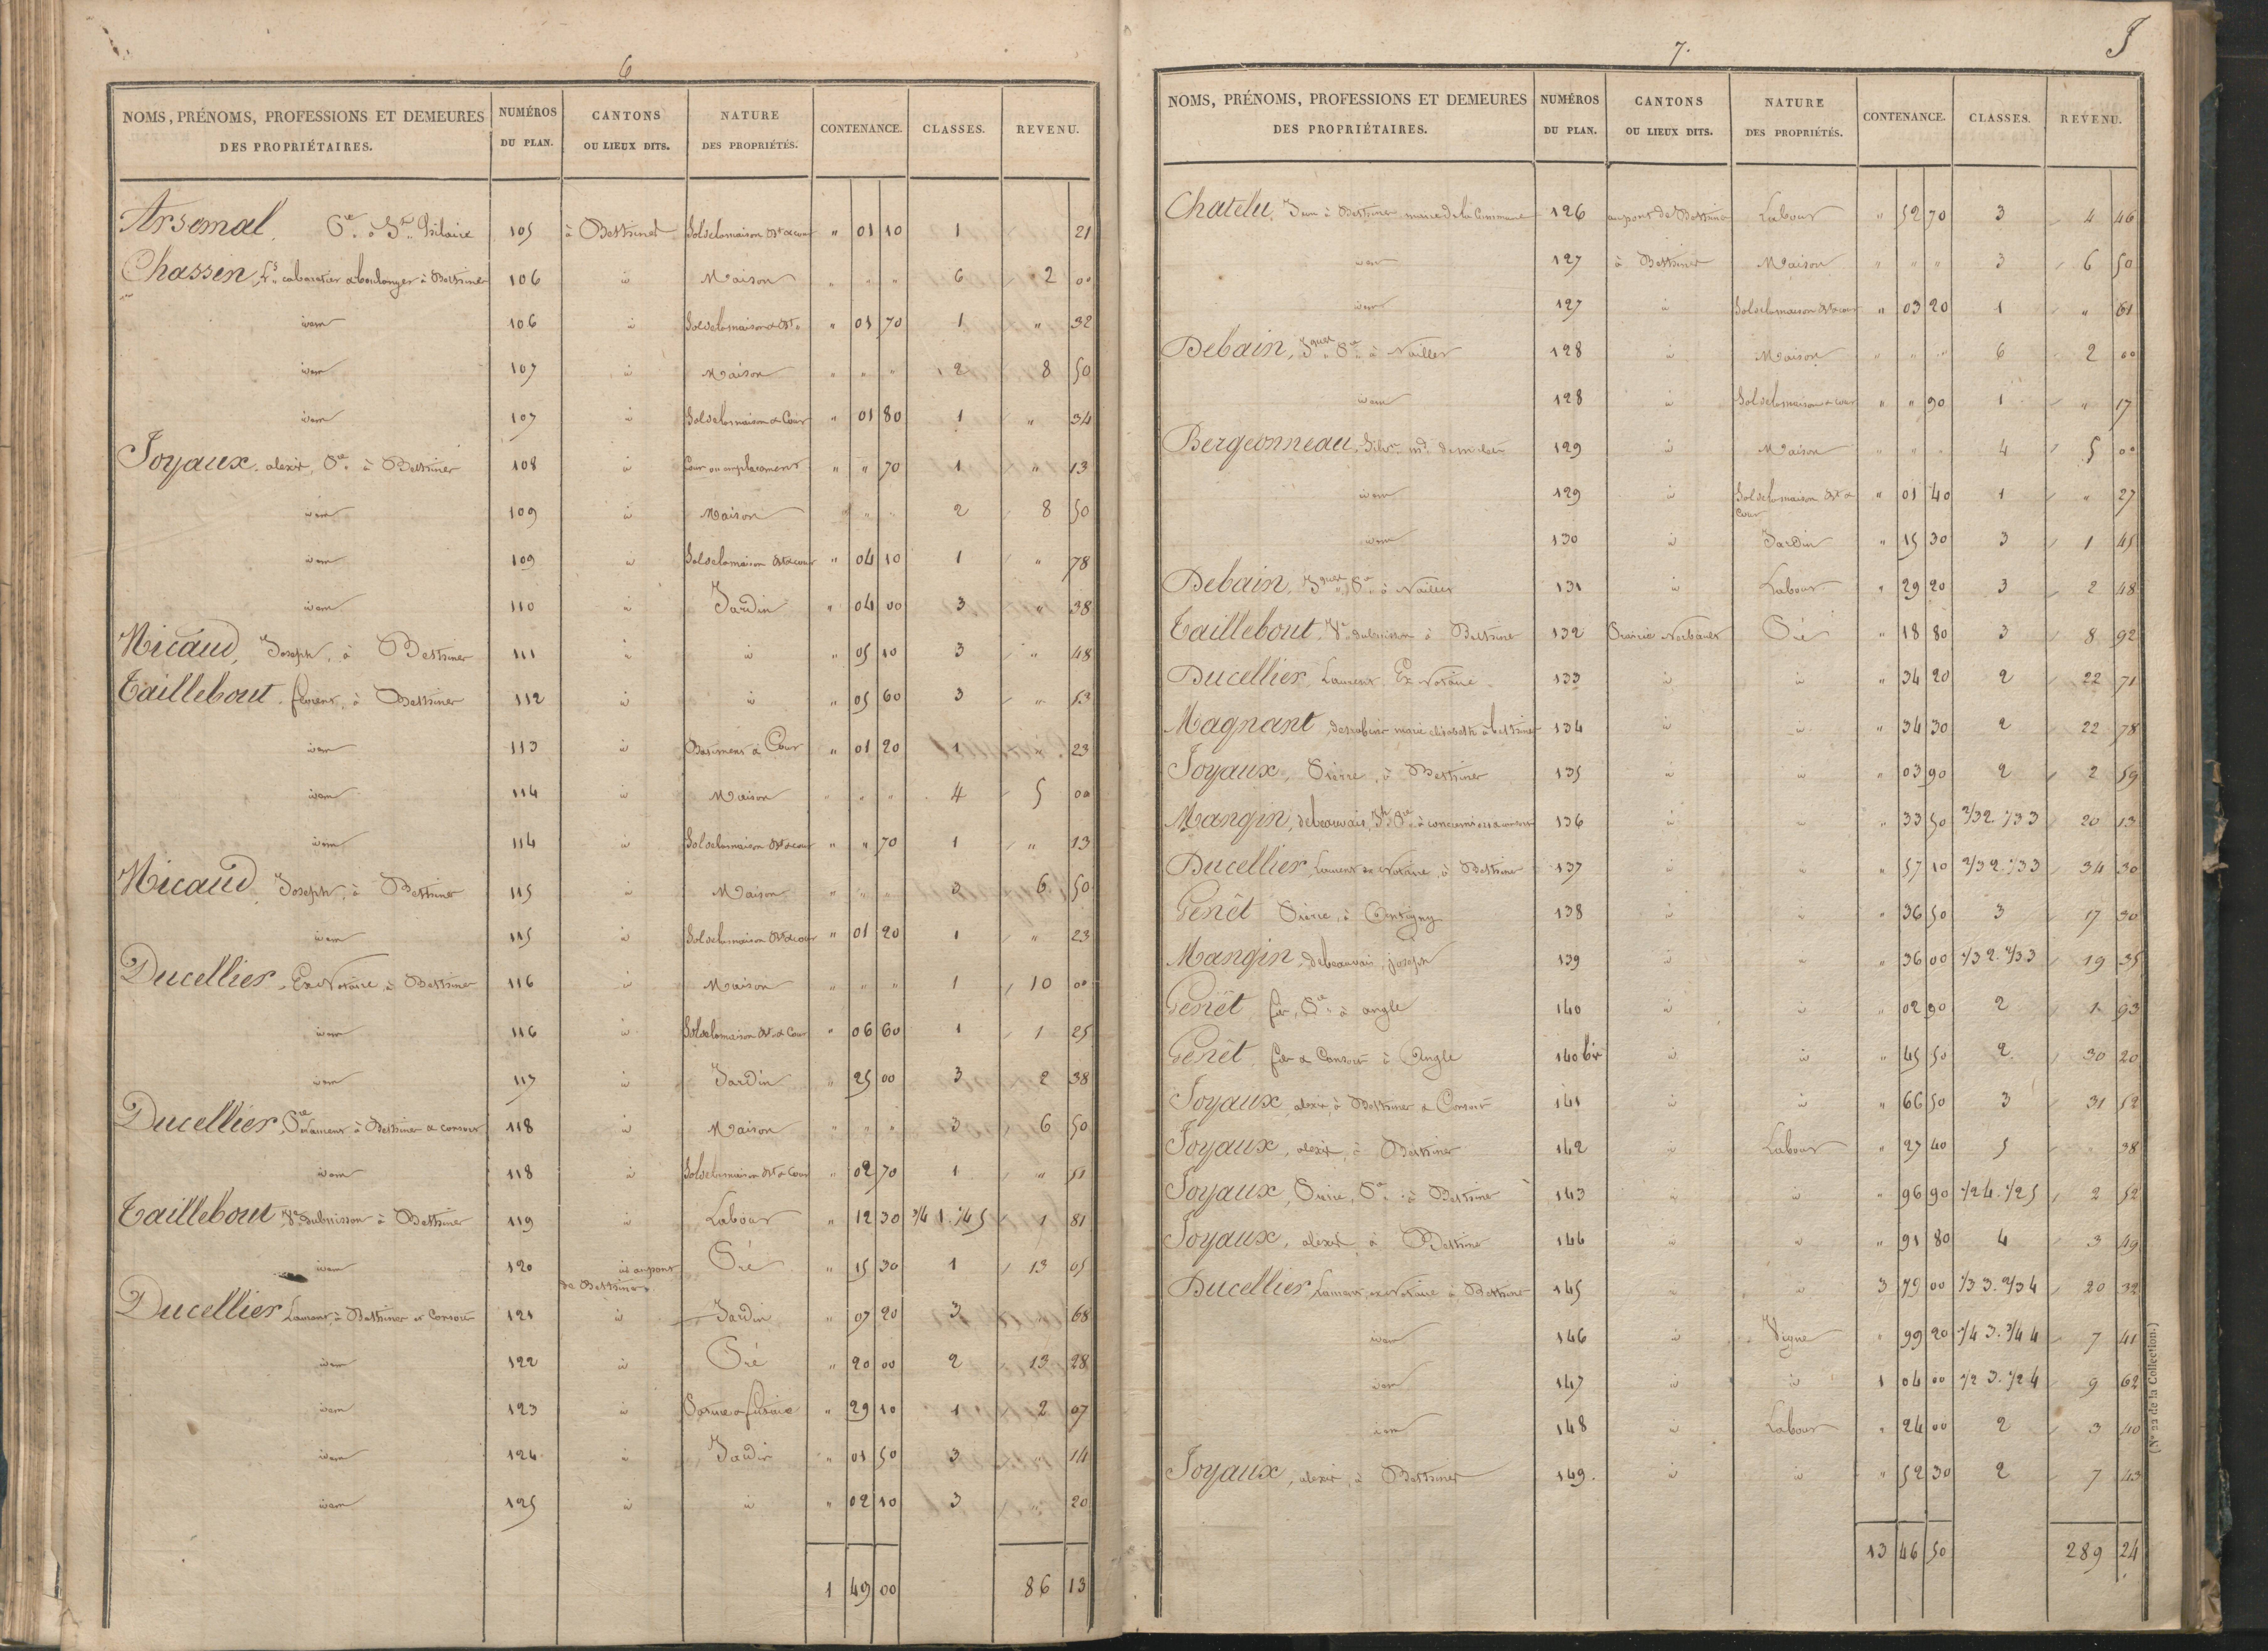 6
NOMS, PRÉNOMS, PROFESSIONS ET DEMEURES DES PROPRIÉTAIRES. NUMÉROS DU PLAN. CANTONS OU LIEUX DITS. NATURE DES PROPRIÉTÉS. CONTENANCE. CLASSES. REVENU.
Arsomal, Pre à St hilaire 105 à Bethinet Sol de la maison Bt & cour " 01 10 1 21
Chassin, cabaretier & boulanger à Bethines 106 id Maison " " " 6 2 00
idem 106 id Sol de la maison & Bt " 01 70 1 " 32
idem 107 id Maison " " " 2 8 50
idem 107 id Sol de la maison & Cour " 01 80 1 " 34
Joyaux, alexis, Pre à Bethines 108 id Cour ou emplacement " " 70 1 " 13
idem 109 id Maison " " " 2 8 50
idem 109 id Sol de la maison Bt & cour " 04 10 1 " 78
idem 110 id Jardin " 04 00 3 " 38
Micaud, Joseph, à Bethines 111 id id " 05 10 3 " 48
Taillebout, florent, à Bethines 112 id id " 05 60 3 " 53
idem 113 id Batiment & Cour " 01 20 1 " 23
idem 114 id Maison " " " 4 5 00
idem 114 id Sol de la maison Bt & cour " " 70 1 " 13
Micaud, Joseph, à Bethines 115 id Maison " " " 3 6 50
idem 115 id Sol de la maison Bt & cour " 01 20 1 " 23
Ducellier, Ex Notaire, à Bethines 116 id Maison " " " 1 10 00
idem 116 id Sol de la maison Bt & Cour " 06 60 1 1 25
idem 117 id Jardin " 25 00 3 2 38
Ducellier, Pre Laurent à Bethines & consors 118 id Maison " " " 3 6 50
idem 118 id Sol de la maison Bt & Cour " 02 70 1 " 51
Taillebout, Ve dubuisson à Bethines 119 id Labour " 12 30 3/4 1. 1/4 5 1 81
idem 120 id au pont de Bethines Pré " 15 30 1 13 05
Ducellier, Laurent, à Bethines et Consors 121 id Jardin " 07 20 3 " 68
idem 122 id Pré " 20 00 2 13 28
idem 123 id 29 10 1 2 07
idem 124 id Jardin " 01 50 3 14
idem 125 id id " 02 10 3 " 20
1 49 00 86 13
7.
J
NOMS, PRÉNOMS, PROFESSIONS ET DEMEURES DES PROPRIÉTAIRES. NUMÉROS DU PLAN. CANTONS OU LIEUX DITS. NATURE DES PROPRIÉTÉS. CONTENANCE. CLASSES. REVENU.
Chatelu, Jean à Bethines maire de la Commune 126 au pont de Bethines Labour " 52 70 3 4 46
idem 127 à Bethines Maison " " " 3 6 50
idem 127 id Sol de la maison Bt & cour " 03 20 1 " 61
Debain, Jques Pre à Nailler 128 id Maison " " " 6 2 00
idem 128 id Sol de la maison & cour " " 90 1 " 17
Bergeonneau, Silvn md 129 id Maison " " " 4 5 00
idem 129 id Sol de la maison Bt & Cour " 01 40 1 " 27
idem 130 id Jardin " 15 30 3 1 45
Debain, Jques Pre à Nailler 131 id Labour " 29 20 3 2 48
Taillebout, Ve dubuisson à Bethines 132 Prairie Pré " 18 80 3 8 92
Ducellier, Laurent Ex Notaire 133 id id " 34 20 2 22 71
Magnant, marie elisabeth à bethines 134 id id " 34 30 2 22 78
Joyaux, Pierre, à Bethines 135 id id " 03 90 2 2 59
Mangin, debeauvais, Jh Pre à 136 id id " 33 50 2/3 2. 1/3 3 20 13
Ducellier, Laurent ex Notaire, à Bethines 137 id id " 57 10 2/3 2. 1/3 3 34 30
Genêt Pierre, à Antigny 138 id id " 36 50 3 17 30
Mangin, debeauvais, joseph 139 id id " 36 00 1/3 2. 2/3 3 19 35
Genêt, fer, Pre à angle 140 id id " 02 90 2 1 93
Genêt, fer & Consors à Angle 140 bis id id " 45 50 2 30 20
Joyaux, alexis, à Bethines & Consors 141 id id " 66 50 3 31 52
Joyaux, alexis, à Bethines 142 id Labour " 27 40 5 38
Joyaux, Pierre, Pre à Bethines 143 id id " 96 90 1/2 4. 1/2 5 2 52
Joyaux, alexis, à Bethines 144 id id " 91 80 4 3 49
Ducellier, Laurent, ex Notaire à Bethines 145 id id 3 79 00 1/3 3. 2/3 4 20 32
idem 146 id Vigne " 99 20 1/4 3. 3/4 4 7 41
idem 147 id id 1 04 00 1/2 3. 1/2 4 9 62
idem 148 id Labour " 24 00 2 3 40
Joyaux, alexis, à Bethines 149. id id " 52 30 2 7 43
13 46 50 289 24
(No 22 de la Collection.)